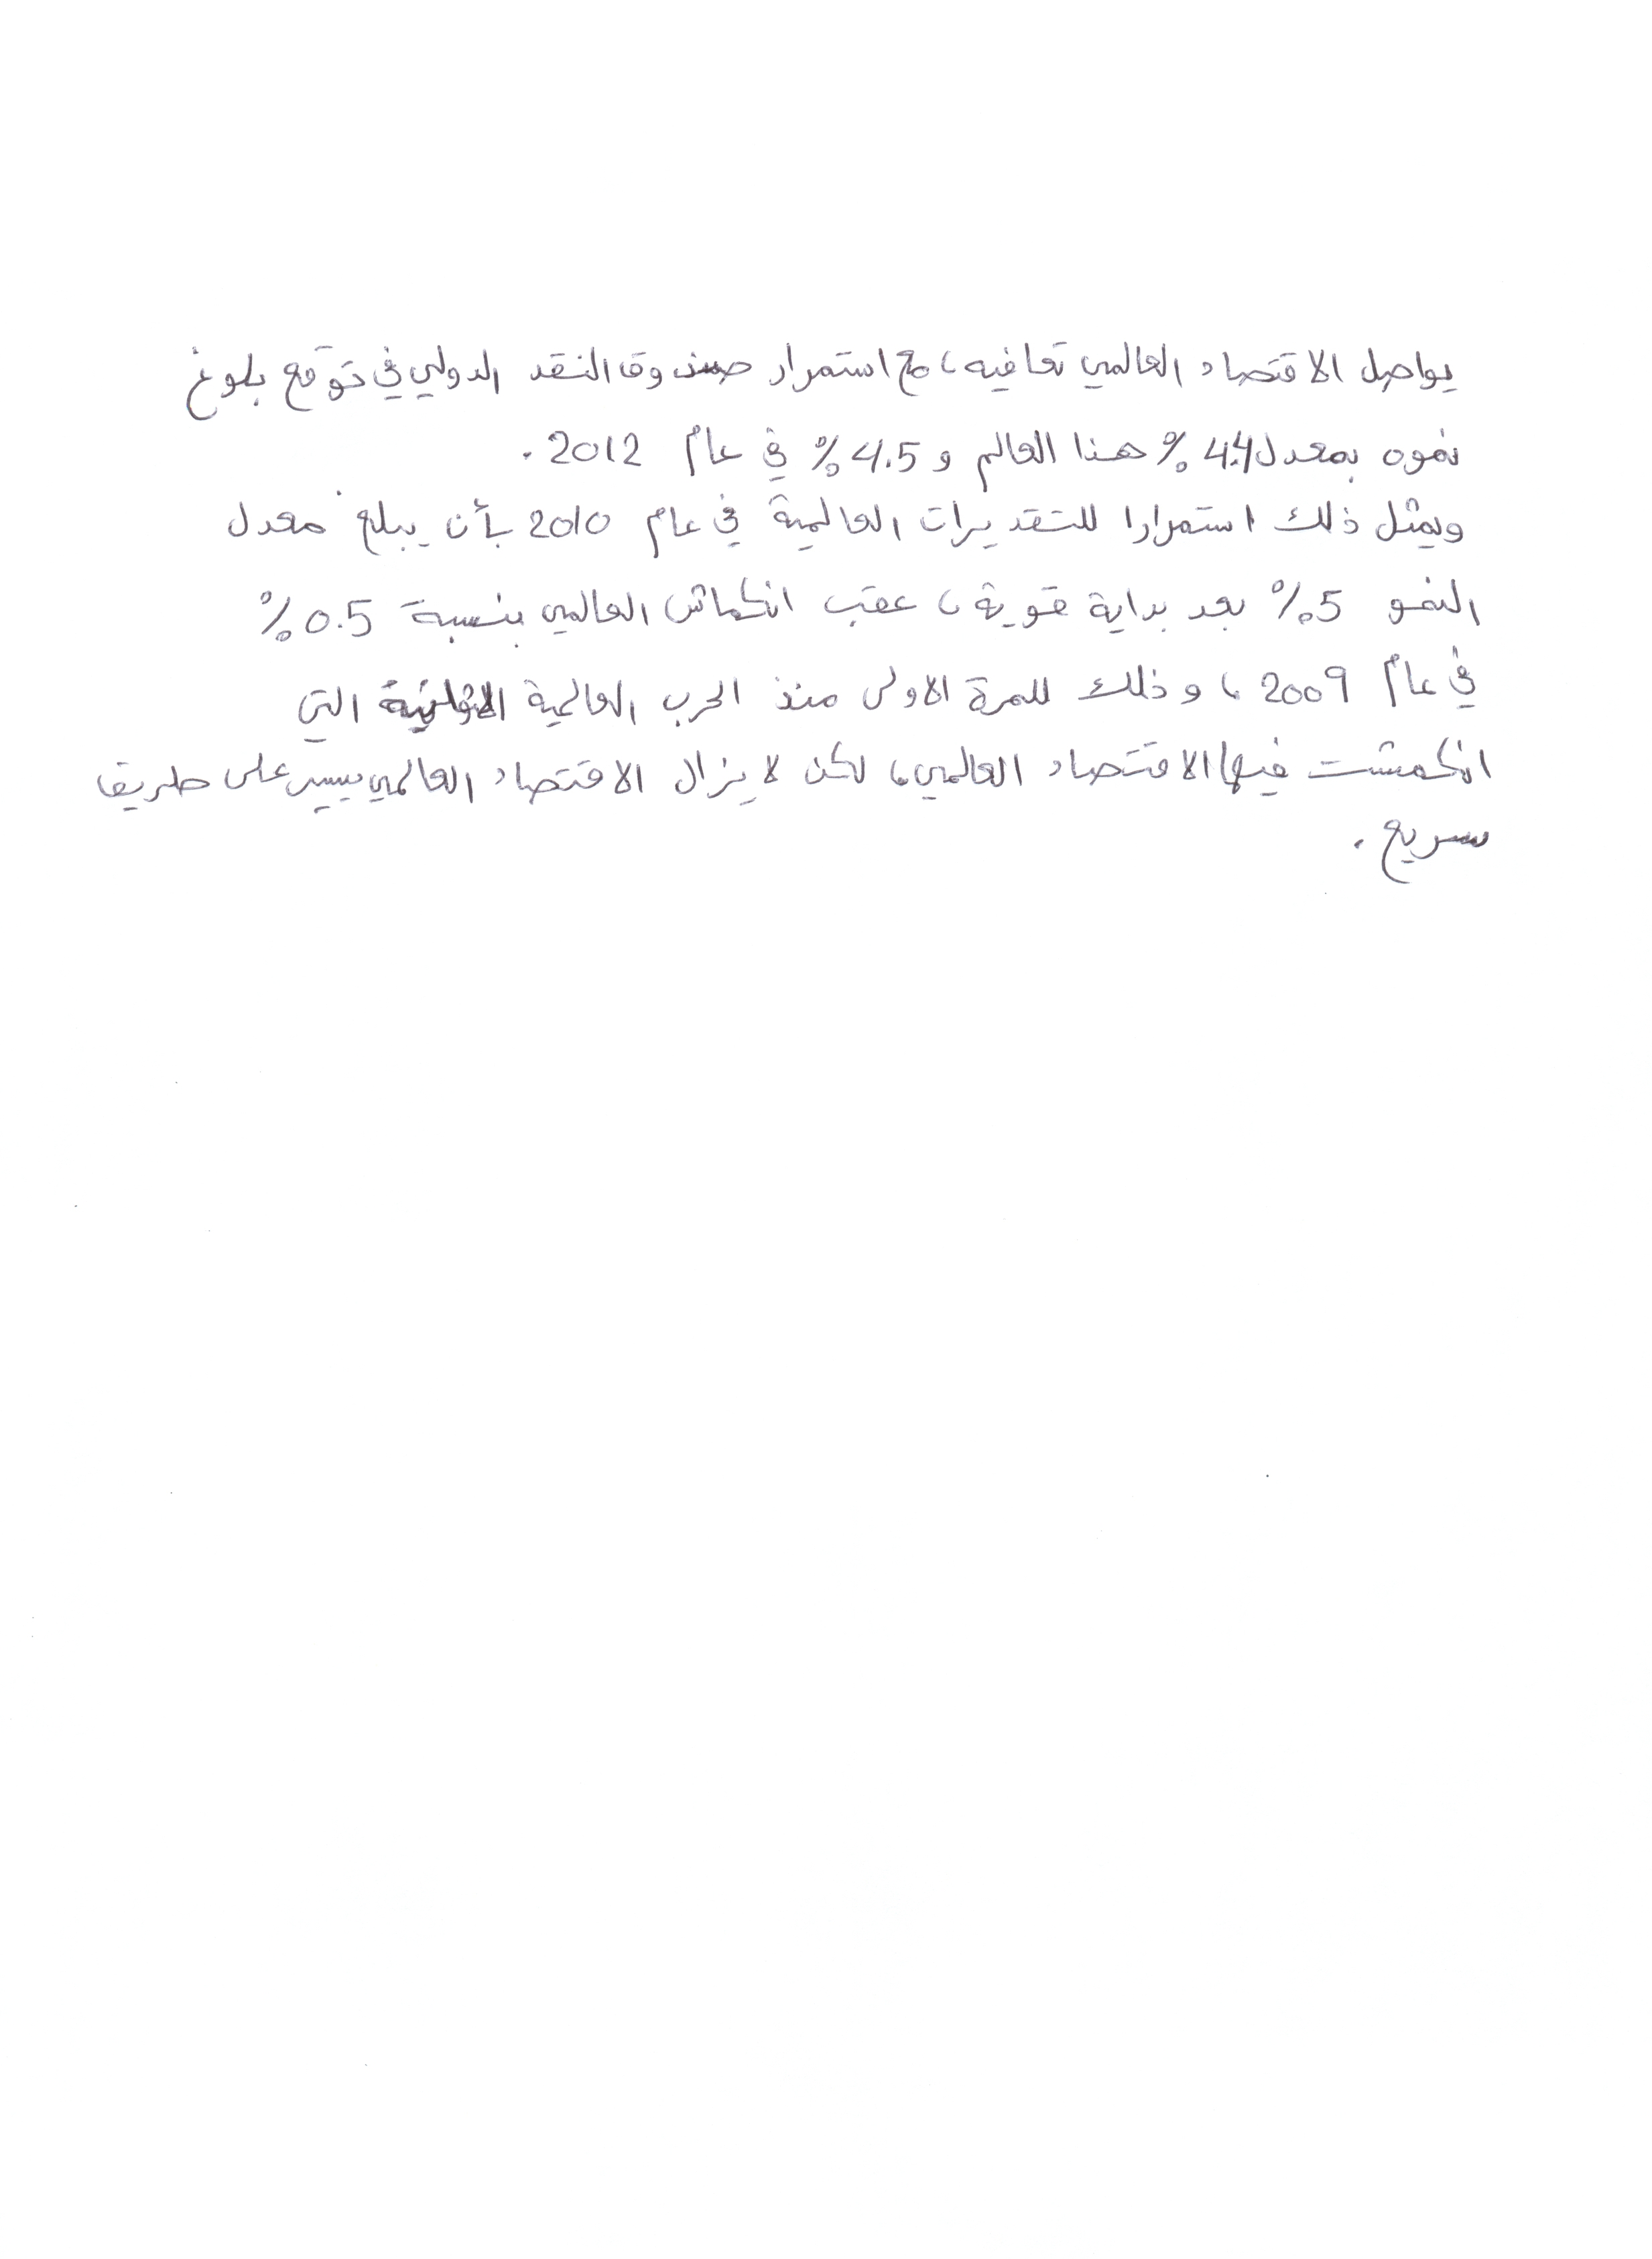 يواصل الاقتصاد العالمي تعافيه، مع استمرار صندوق النقد الدولي في توقع بلوغ
نموه بمعدل 4.4% هذا العالم و 4.5% في عام 2012.
ويمثل ذلك استمرارا للتقديرات العالمية في عام 2010 بأن يبلغ معدل
النمو 5% بعد بداية قوية، عقب انكماش العالمي بنسبة 0.5%
في عام 2009، وذلك للمرة الاولى منذ الحرب العالمية الثانية التي
انكمشت فيها الاقتصاد العالمي، لكن لا يزال الاقتصاد العالمي يسير على طريقا
سريع.